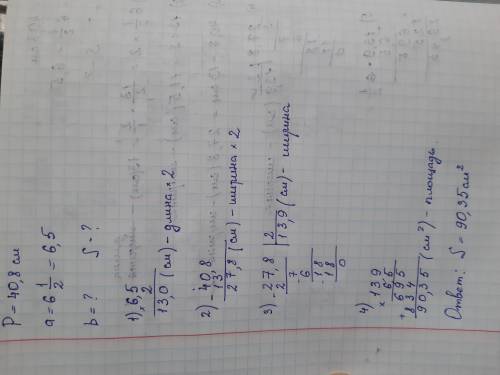 P = 40,8 см
a = 6 1/2 = 6,5
b = ? S - ?
1) × 6,5
2
13,0 (см) - длина × 2
2) - 40,8
13
27,8 (см) - ширина × 2
3) - 27,8 | 2
2 13,9 (см) - ширина
- 7
6
- 18
18
0
4) × 139
65
+ 695
834
90,35 (см²) - площадь
Ответ: S = 90,35 см²